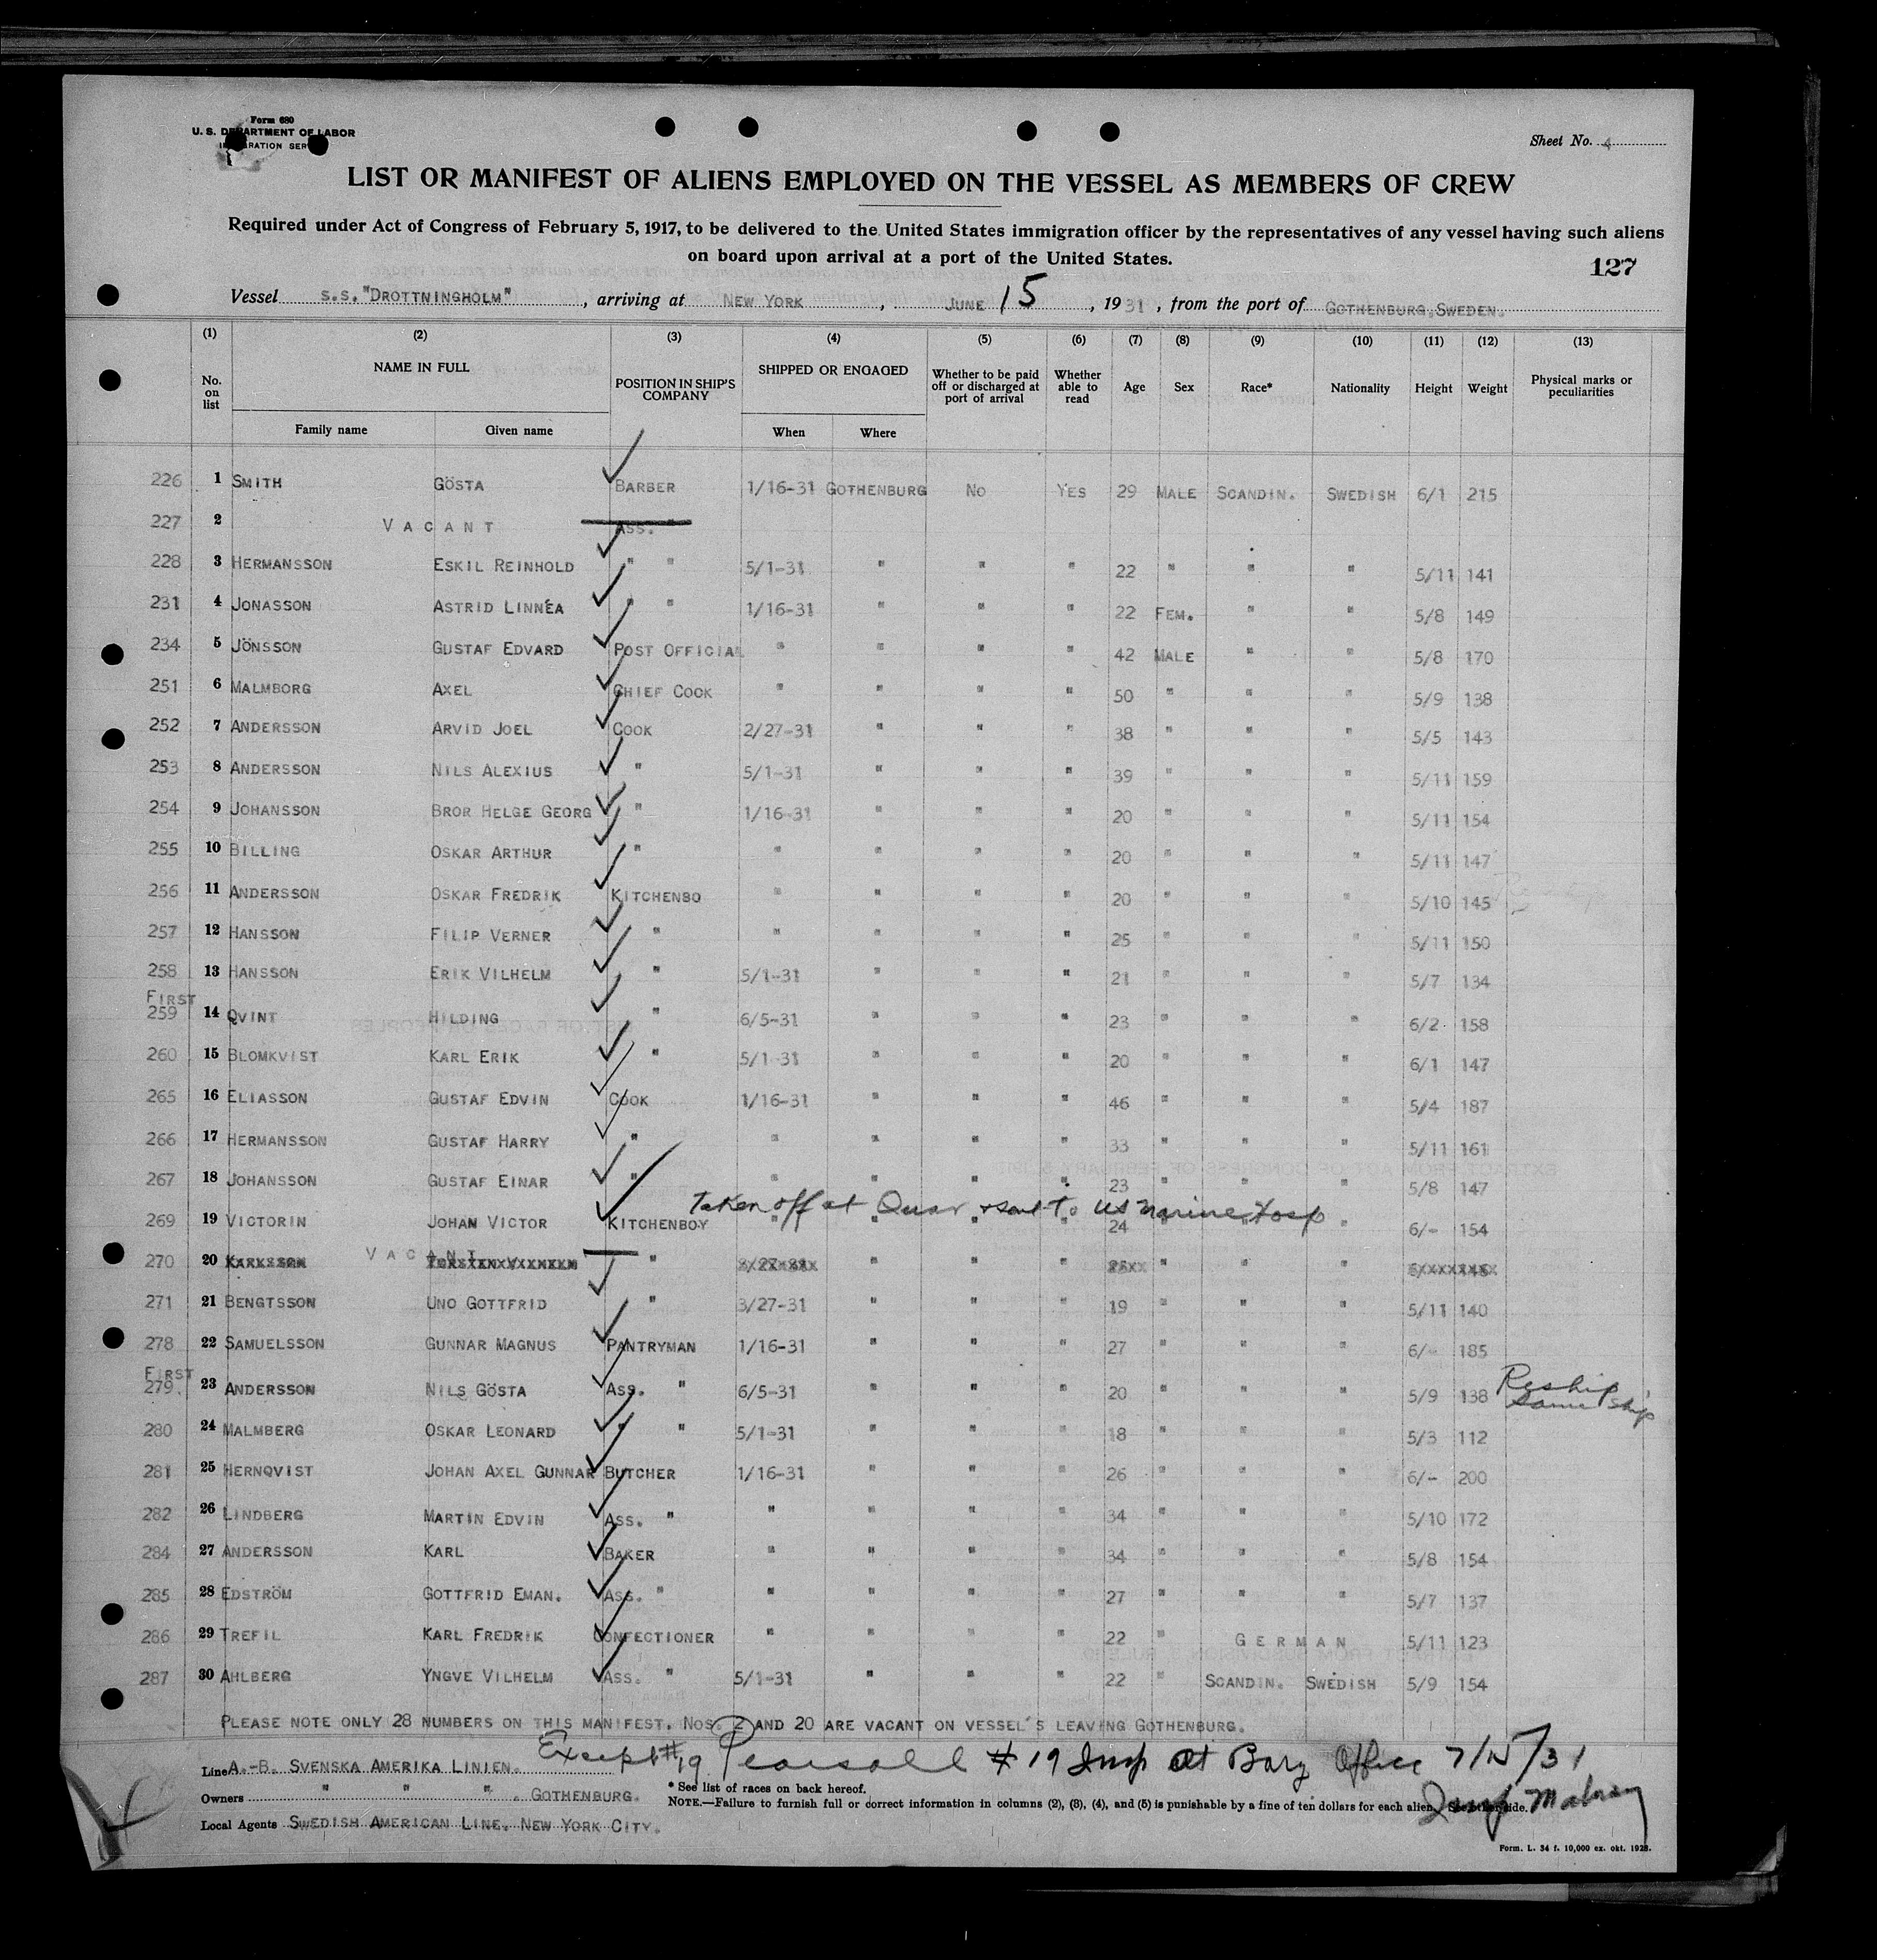 Form 680
U. S. DEPARTMENT OF LABOR
Sheet No. 4
LIST OR MANIFEST OF ALIENS EMPLOYED ON THE VESSEL AS MEMBERS OF CREW
Required under Act of Congress of February 5, 1917, to be delivered to the United States immigration officer by the representatives of any vessel having such aliens
on board upon arrival at a port of the United States.
127
Vessel S.S. "DROTTNINGHOLM", arriving at NEW YORK, JUNE 15, 1931, from the port of GOTHENBURG, SWEDEN.
(1) (2) (3) (4) (5) (6) (7) (8) (9) (10) (11) (12) (13)
No. on list NAME IN FULL POSITION IN SHIP'S COMPANY SHIPPED OR ENGAGED Whether to be paid off or discharged at port of arrival Whether able to read Age Sex Race* Nationality Height Weight Physical marks or peculiarities
Family name Given name When Where
226 1 SMITH GÖSTA BARBER 1/16-31 GOTHENBURG NO YES 29 MALE SCANDIN. SWEDISH 6/1 215
227 2 VACANT ASS. "
228 3 HERMANSSON ESKIL REINHOLD " " 5/1-31 " " " 22 " " " 5/11 141
231 4 JONASSON ASTRID LINNÉA " " 1/16-31 " " " 22 FEM. " " 5/8 149
234 5 JÖNSSON GUSTAF EDVARD POST OFFICIAL " " " " 42 MALE " " 5/8 170
251 6 MALMBORG AXEL CHIEF COOK " " " " 50 " " " 5/9 138
252 7 ANDERSSON ARVID JOEL COOK 2/27-31 " " " 38 " " " 5/5 143
253 8 ANDERSSON NILS ALEXIUS " 5/1-31 " " " 39 " " " 5/11 159
254 9 JOHANSSON BROR HELGE GEORG " 1/16-31 " " " 20 " " " 5/11 154
255 10 BILLING OSKAR ARTHUR " " " " " 20 " " " 5/11 147
256 11 ANDERSSON OSKAR FREDRIK KITCHENBO " " " " 20 " " " 5/10 145
257 12 HANSSON FILIP VERNER " " " " " 25 " " " 5/11 150
258 13 HANSSON ERIK VILHELM " 5/1-31 " " " 21 " " " 5/7 134
FIRST
259 14 QVINT HILDING " 6/5-31 " " " 23 " " " 6/2 158
260 15 BLOMKVIST KARL ERIK " 5/1-31 " " " 20 " " " 6/1 147
265 16 ELIASSON GUSTAF EDVIN COOK 1/16-31 " " " 46 " " " 5/4 187
266 17 HERMANSSON GUSTAF HARRY " " " " " 33 " " " 5/11 161
267 18 JOHANSSON GUSTAF EINAR " " " " " 23 " " " 5/8 147
Taken off at Quar & sent to US Marine Hosp
269 19 VICTORIN JOHAN VICTOR KITCHENBOY " " " " 24 " " " 6/- 154
270 20 VACANT " " " " " " "
271 21 BENGTSSON UNO GOTTFRID " 3/27-31 " " " 19 " " " 5/11 140
278 22 SAMUELSSON GUNNAR MAGNUS PANTRYMAN 1/16-31 " " " 27 " " " 6/- 185
FIRST
279 23 ANDERSSON NILS GÖSTA ASS. " 6/5-31 " " " 20 " " " 5/9 138 Reship same ship
280 24 MALMBERG OSKAR LEONARD " " 5/1-31 " " " 18 " " " 5/3 112
281 25 HERNQVIST JOHAN AXEL GUNNAR BUTCHER 1/16-31 " " " 26 " " " 6/- 200
282 26 LINDBERG MARTIN EDVIN ASS. " " " " " 34 " " " 5/10 172
284 27 ANDERSSON KARL BAKER " " " " 34 " " " 5/8 154
285 28 EDSTRÖM GOTTFRID EMAN. ASS. " " " " " 27 " " " 5/7 137
286 29 TREFIL KARL FREDRIK CONFECTIONER " " " " 22 " GERMAN 5/11 123
287 30 AHLBERG YNGVE VILHELM ASS. " 5/1-31 " " " 22 " SCANDIN. SWEDISH 5/9 154
PLEASE NOTE ONLY 28 NUMBERS ON THIS MANIFEST. NOS. 2 AND 20 ARE VACANT ON VESSEL'S LEAVING GOTHENBURG.
Except #19 Pearsall # 19 Insp at Barg Office 7/15/31
Line A.-B. SVENSKA AMERIKA LINIEN.
Owners " " " , GOTHENBURG.
* See list of races on back hereof.
NOTE.—Failure to furnish full or correct information in columns (2), (3), (4), and (5) is punishable by a fine of ten dollars for each alien. See other side.
Local Agents SWEDISH AMERICAN LINE. NEW YORK CITY.
Form. L. 34 f. 10,000 ex. okt. 1928.